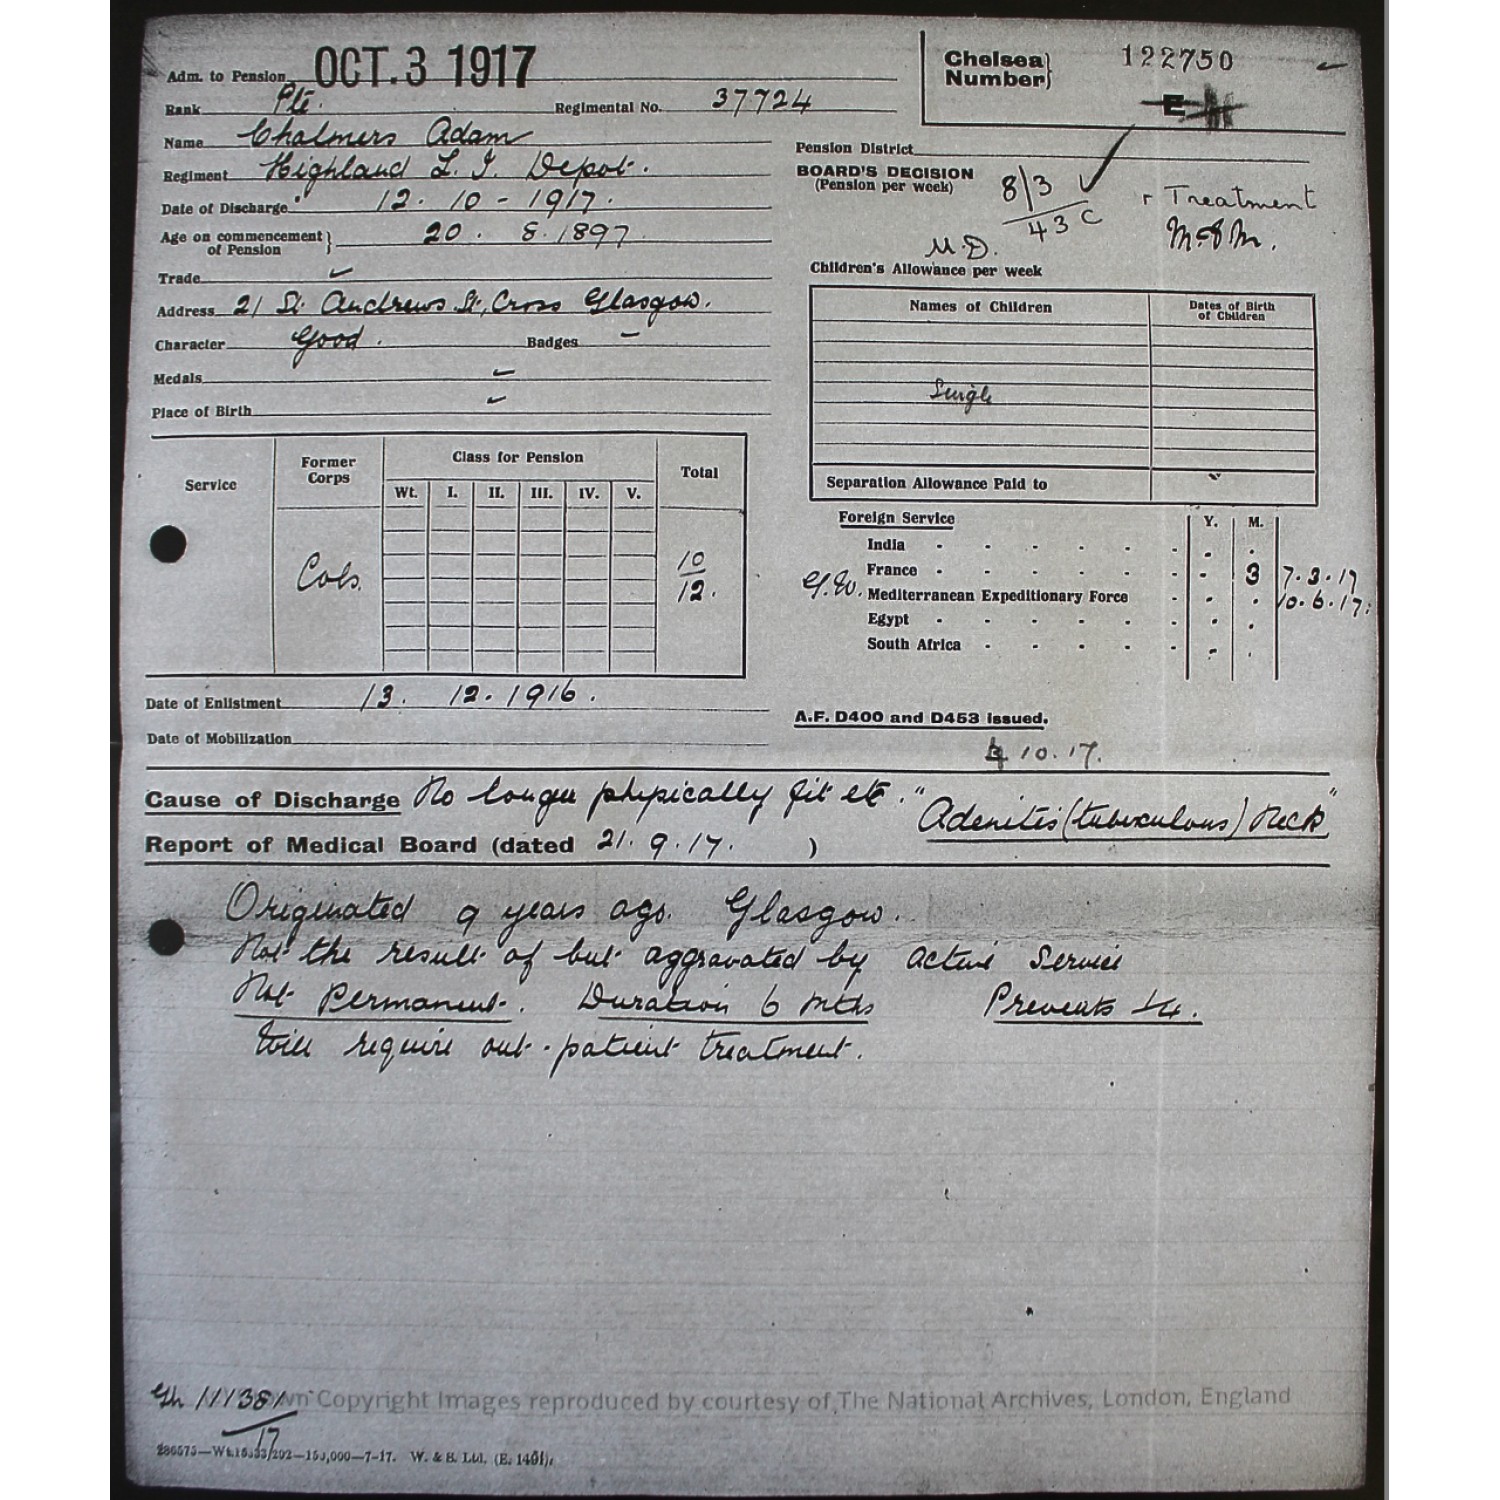 Adm. to Pension OCT. 3 1917
Rank Pte. Regimental No. 37724
Name Chalmers Adam
Regiment Highland L. I. Depot.
Date of Discharge 12. 10 - 1917.
Age on commencement of Pension} 20. 8. 1897.
Trade
Address 21 St. Andrews St, Cross Glasgow.
Character Good. Badges –
Medals
Place of Birth
Chelsea Number} 122750
E
Pension District
BOARD'S DECISION
(Pension per week)
8/3
43 C
Treatment
M.D.
Children's Allowance per week
Names of Children Dates of Birth of Children
Single
Separation Allowance Paid to
Service Former Corps Class for Pension Total
Wt. I. II. III. IV. V.
Cols. 10/12.
Foreign Service Y. M.
India
France 3 7.3.17
G.W. Mediterranean Expeditionary Force 10.6.17.
Egypt
South Africa
Date of Enlistment 13. 12. 1916.
Date of Mobilization
A.F. D400 and D453 issued.
10.17.
Cause of Discharge No longer physically fit etc. "Adenitis (tuberculous) Neck"
Report of Medical Board (dated 21. 9. 17. )
Originated 9 years ago. Glasgow.
Not the result of but aggravated by active service
Not Permanent. Duration 6 mths Prevents 1/4.
Will require out-patient treatment.
111381/17
Copyright Images reproduced by courtesy of The National Archives, London, England
—150,000—7-17. W. & S. Ltd. (E. 1401).